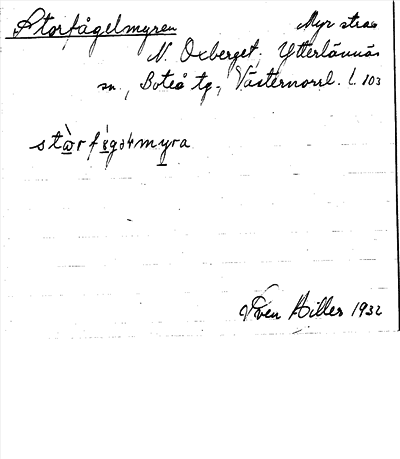 Storfågelmyren Myr strax
N. Oxberget, Ytterlännäs
sn, Boteå tg, Västernorrl. l. 103
stὼrfὼgəłmyra
Sven Hiller 1932